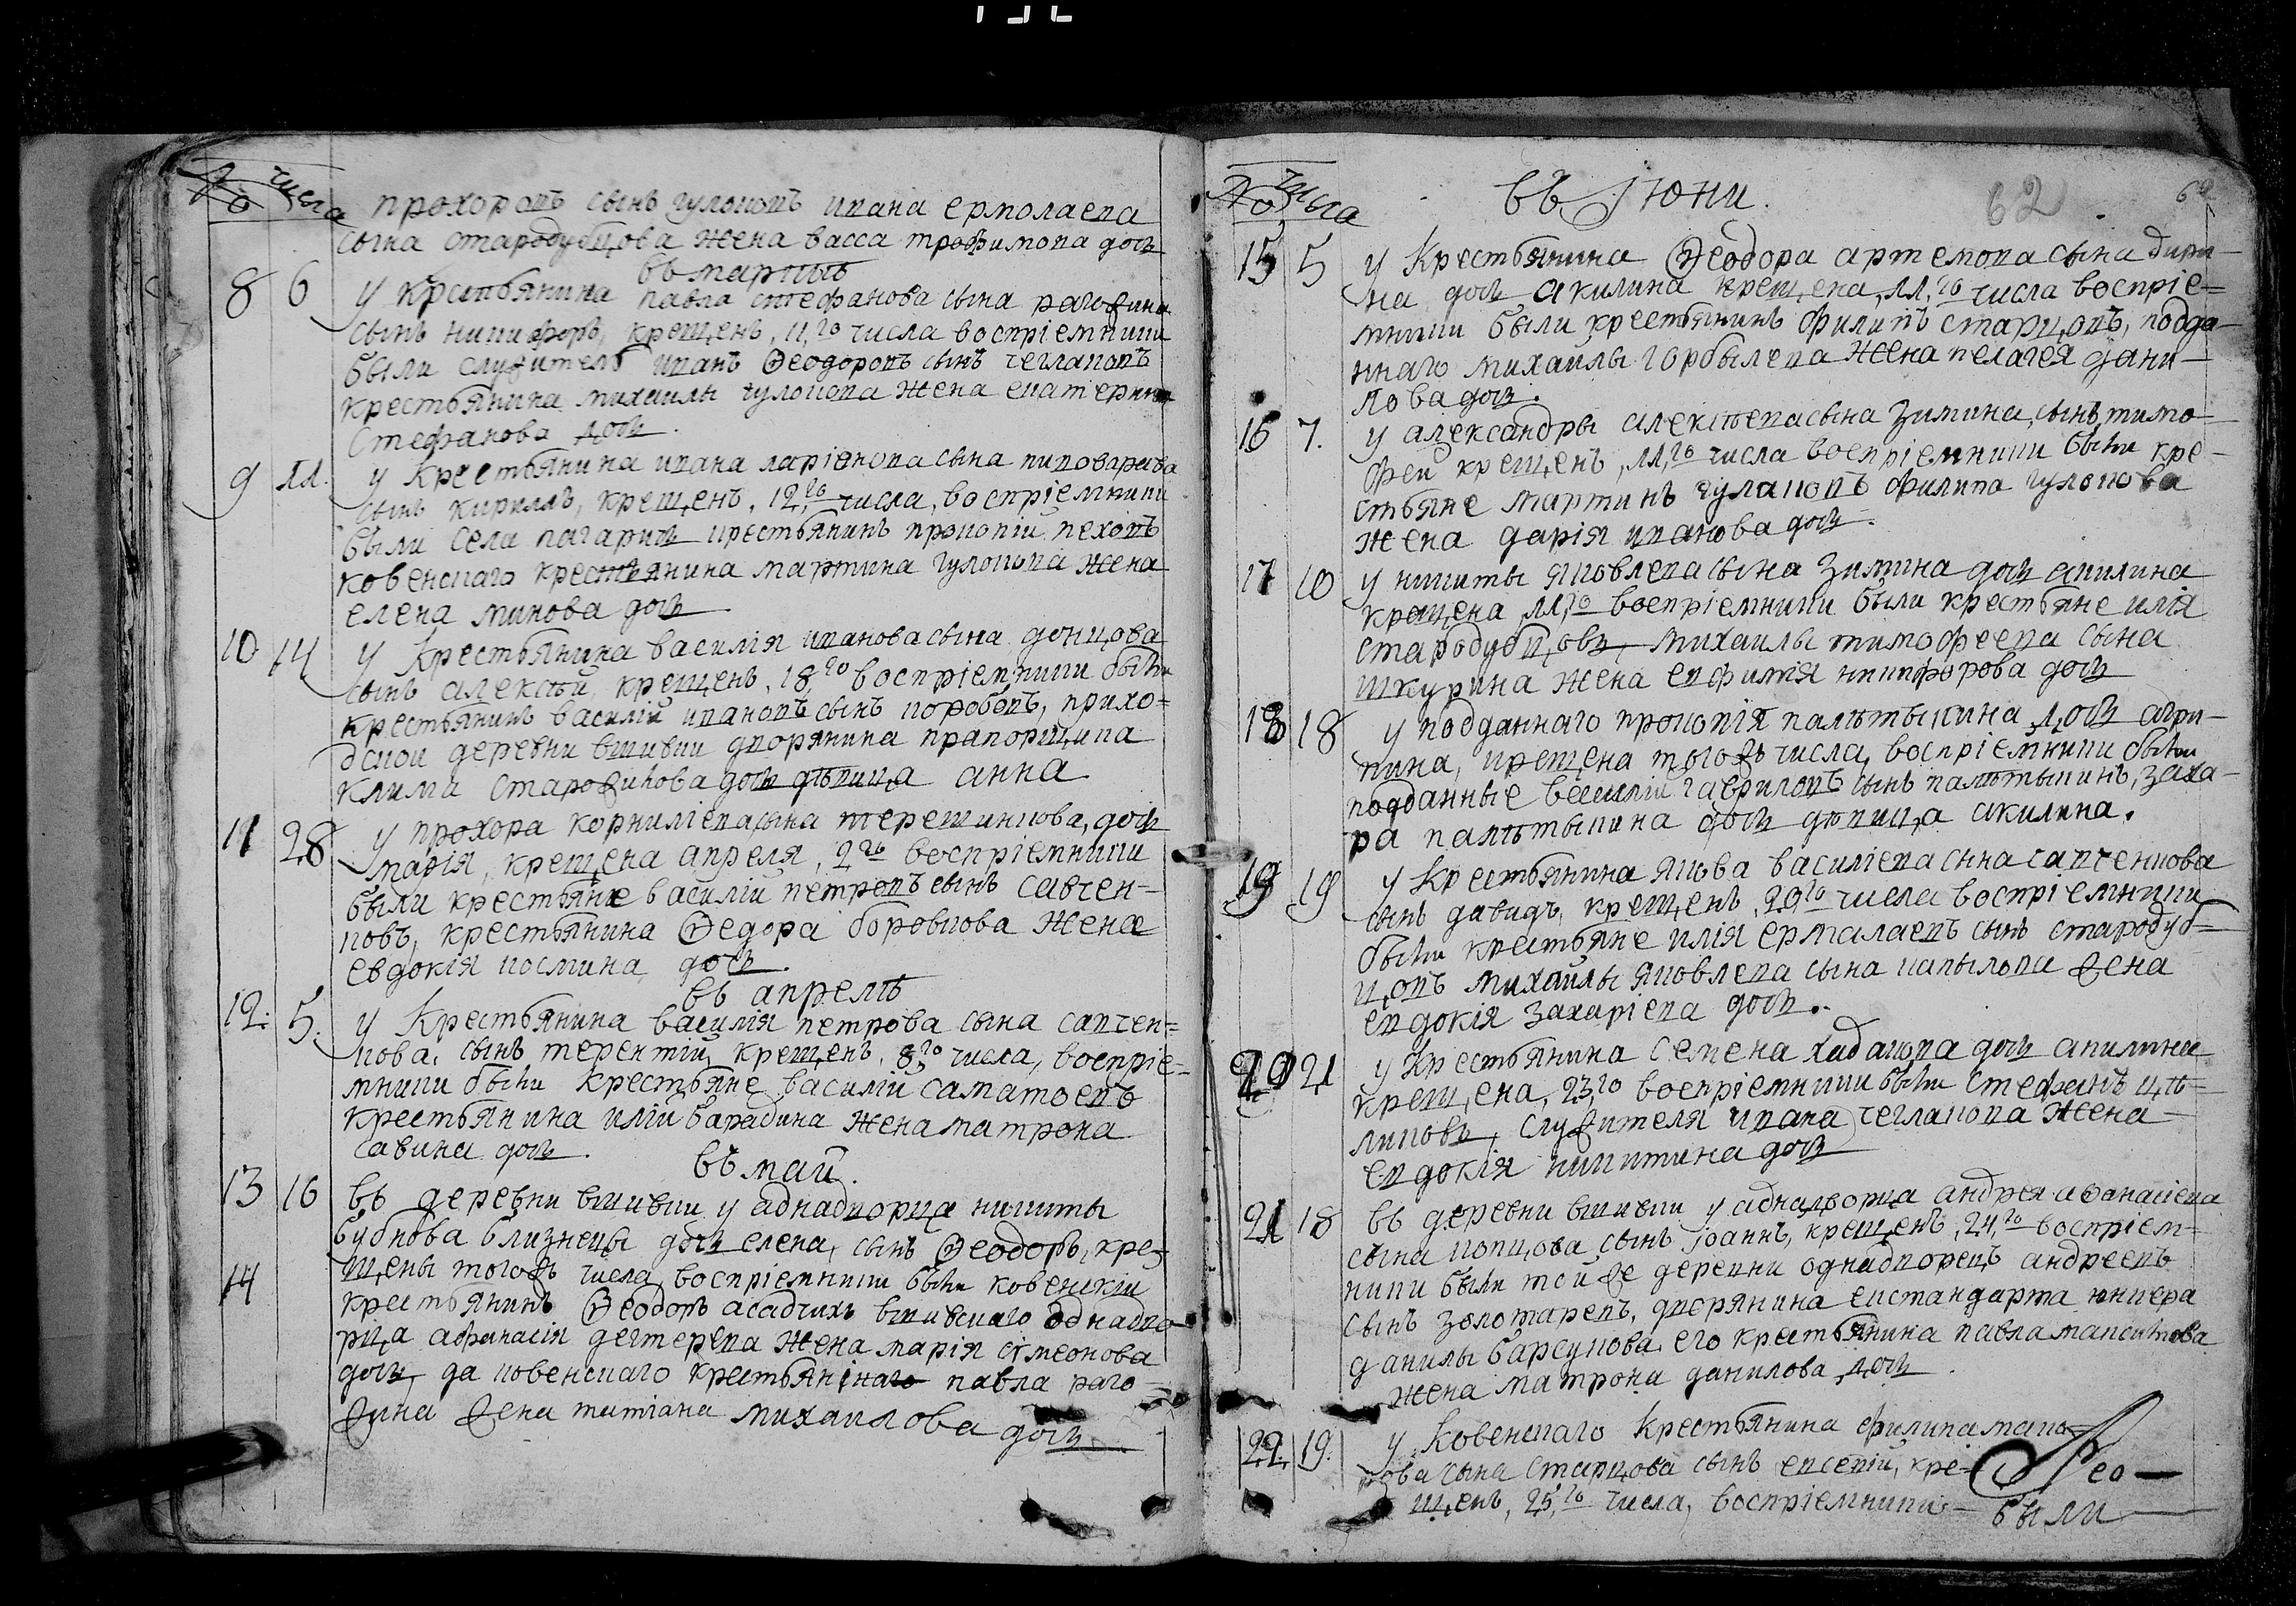 № числа
прохоровъ сынъ гулоковъ ивана ермолаева
сына стародубцова жена васса трофимова дочь
въ мартѣ
8 6 у крестьянина павла стефанова сына рагожина
сынъ никифоръ, крещенъ, 11,го числа воспріемники
были служитель иванъ Ѳеодоровъ сынъ чеглаковъ
крестьянина михаилы гулокова жена екатерина
Стефанова дочь.
9 11. у Крестьянина ивана ларіонова сына пивоварова
сынъ кириллъ, крещенъ, 12,го числа, воспріемники
были села пагарич крестьянинъ прокопій пеховъ
ковенскаго крестьянина мартина гулокова жена
елена минова дочь
10 14 у Крестьянина василія иванова сына донцова
сынъ алексѣй, крещенъ, 18,го воспріемники были
крестьянинъ василій ивановъ сынъ коробовъ, прихо=
дской деревни вшивки дворянина прапорщика
клима старожилова дочь дѣвица анна
11 28 у прохора корниліева сына терешинкова, дочь
марія, крещена апреля, 2го воспріемники
были крестьяне василій петровъ сынъ савчен=
ковъ, крестьянина Ѳедора боровкова жена
евдокія космина дочь.
въ апрелѣ
12. 5. у Крестьянина василія петрова сына савчен=
кова, сынъ терентій, крещенъ, 8,го числа, воспріе=
мники были крестьяне василій саматоевъ
крестьянина иліи барабина жена матрона
савина дочь.
въ май.
13 16 въ деревни вшивки у аднадворца никиты
бубнова близнецы дочь елена, сынъ Ѳеодоръ, кре=
14 щены тогожъ числа, воспріемники были ковенскіи
крестьянинъ Ѳеодоръ асадчихъ вшивскаго однадво
рца афанасія дегтерева жена марія сімеонова
дочь, да ковенскаго крестьянінаго павла раго=
жина жена татіана михаилова дочь
№ числа въ Іюни. 62 62
15 5 у Крестьянина Ѳеодора артемова сына дири=
на дочь акилина крещена, 11,го числа воспріе=
мники были крестьянинъ филипъ старцовъ, подда=
ннаго михаилы горбылева жена пелагея дани=
лова дочь.
16 7. у александры алексѣева сына Зимина, сынъ тимо=
фей крещенъ, 11,го числа воспріемники были кре=
стьяне мартинъ гулаковъ филипа гулокова
жена дарія иванова дочь.
17 10 у никиты яковлева сына Зимина дочь акилина
крещена, 11,го воспріемники были крестьяне илія
стародубцовъ, михаилы тимофеева сына
шкурина жена евфимія никифорова дочь
18 18 у подданнаго прокопія палѣтыкина дочь агри=
пина, крещена тогожъ числа, воспріемники были
подданные василій гавриловъ сынъ палѣтыкинъ, заха=
ра палѣтыкина дочь дѣвица акилина.
19 19 у Крестьянина якова василіева сына савченкова
сынъ давидъ, крещенъ, 20го числа воспріемники
были крестьяне илія ермалаевъ сынъ стародуб=
цовъ михаилы яковлева сына капылова жена
евдокія захаріева дочь.
20 21 у Крестьянина Семена хадакова дочь акилина
крещена, 23,го воспріемники были Стефанъ цы=
ликовъ, служителя ивана чеглакова жена
евдокія никитина дочь
21 18 въ деревни вшивки у аднадворца андрея афанасіева
сына копцова сынъ Іоаннъ, крещенъ, 24,го воспріем=
ники были той же деревни однадворецъ андреевъ
сынъ золотаревъ, дворянина еистандарта юнкера
данилы барсукова, его крестьянина павла
жена матрона данилова дочь.
22. 19. у Ковенскаго Крестьянина филипа мака=
рова сына Старцова сынъ евсевій, кре=
щенъ, 25,го числа, воспріемники=
были